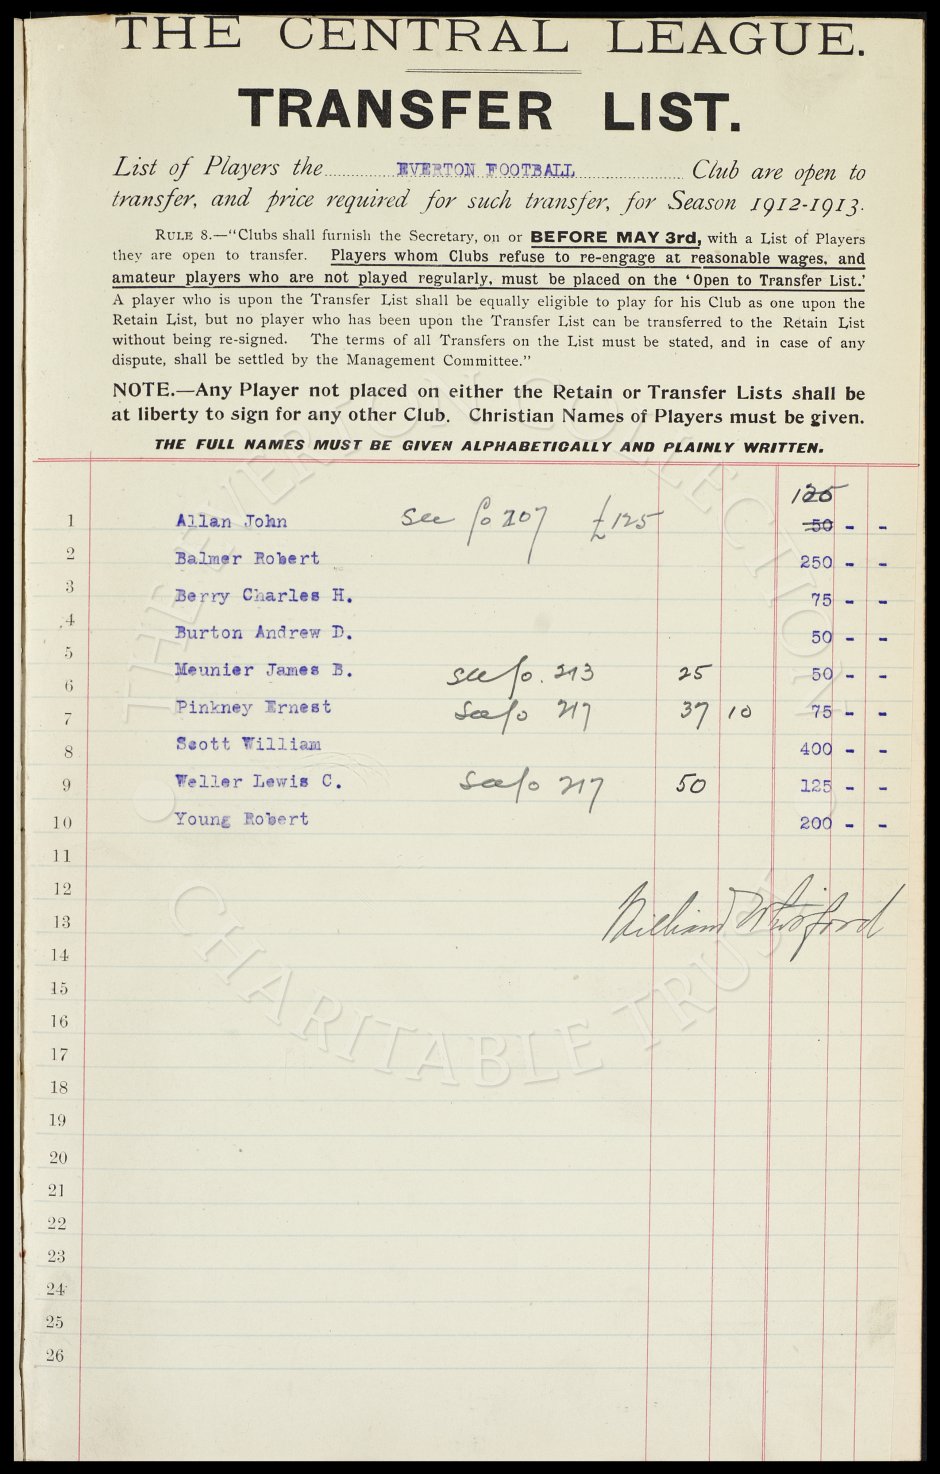 THE CENTRAL LEAGUE.
TRANSFER LIST.
List of Players the EVERTON FOOTBALL Club are open to
transfer, and price required for such transfer, for Season 1912-1913.
RULE 8.—“Clubs shall furnish the Secretary, on or BEFORE MAY 3rd, with a List of Players
they are open to transfer. Players whom Clubs refuse to re-engage at reasonable wages, and
amateur players who are not played regularly, must be placed on the ‘Open to Transfer List.’
A player who is upon the Transfer List shall be equally eligible to play for his Club as one upon the
Retain List, but no player who has been upon the Transfer List can be transferred to the Retain List
without being re-signed. The terms of all Transfers on the List must be stated, and in case of any
dispute, shall be settled by the Management Committee.”
NOTE.—Any Player not placed on either the Retain or Transfer Lists shall be
at liberty to sign for any other Club. Christian Names of Players must be given.
THE FULL NAMES MUST BE GIVEN ALPHABETICALLY AND PLAINLY WRITTEN.
125
1 Allan John see fo 207 £125 50 - -
2 Balmer Robert 250 - -
3 Berry Charles H. 75 - -
4 Burton Andrew D. 50 - -
5 Meunier James B. see fo. 213 25 50 - -
6 Pinkney Ernest see fo 217 37 10 75 - -
7 Scott William 400 - -
8 Weller Lewis C. see fo 217 50 125 - -
9 Young Robert 200 - -
10
11
12
13 William Whitford
14
15
16
17
18
19
20
21
22
23
24
25
26
THE EVERTON COLLECTION
CHARITABLE TRUST